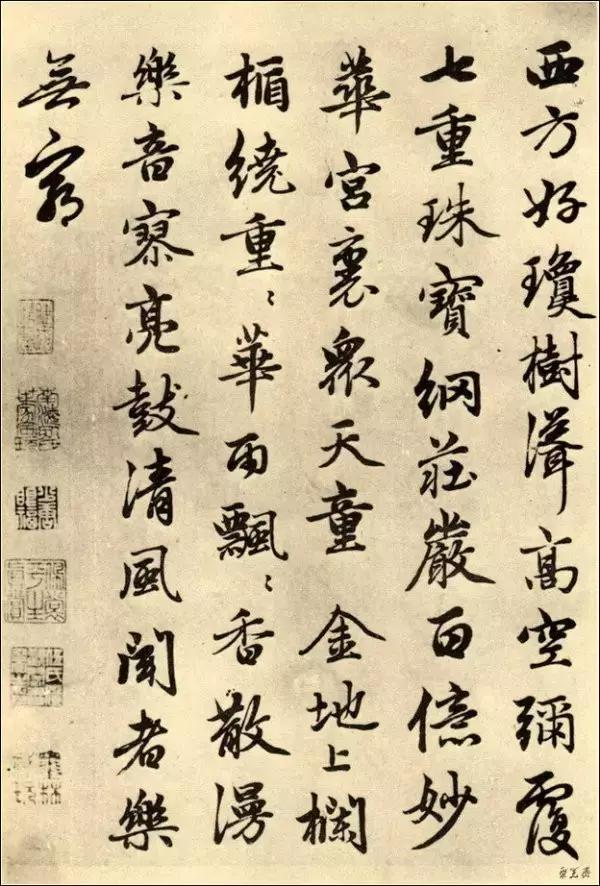 西方好瓊樹聳高空彌覆
七重珠寶網莊嚴百億妙
華宮裏衆天童 金地上欄
楯繞重〻華雨飄〻香散漫
樂音寥亮鼓清風聞者樂
無窮